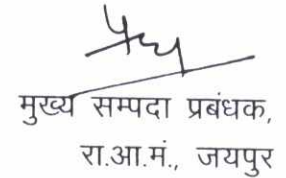 मुख्य सम्पदा प्रबंधक,
रा.आ.मं., जयपुर